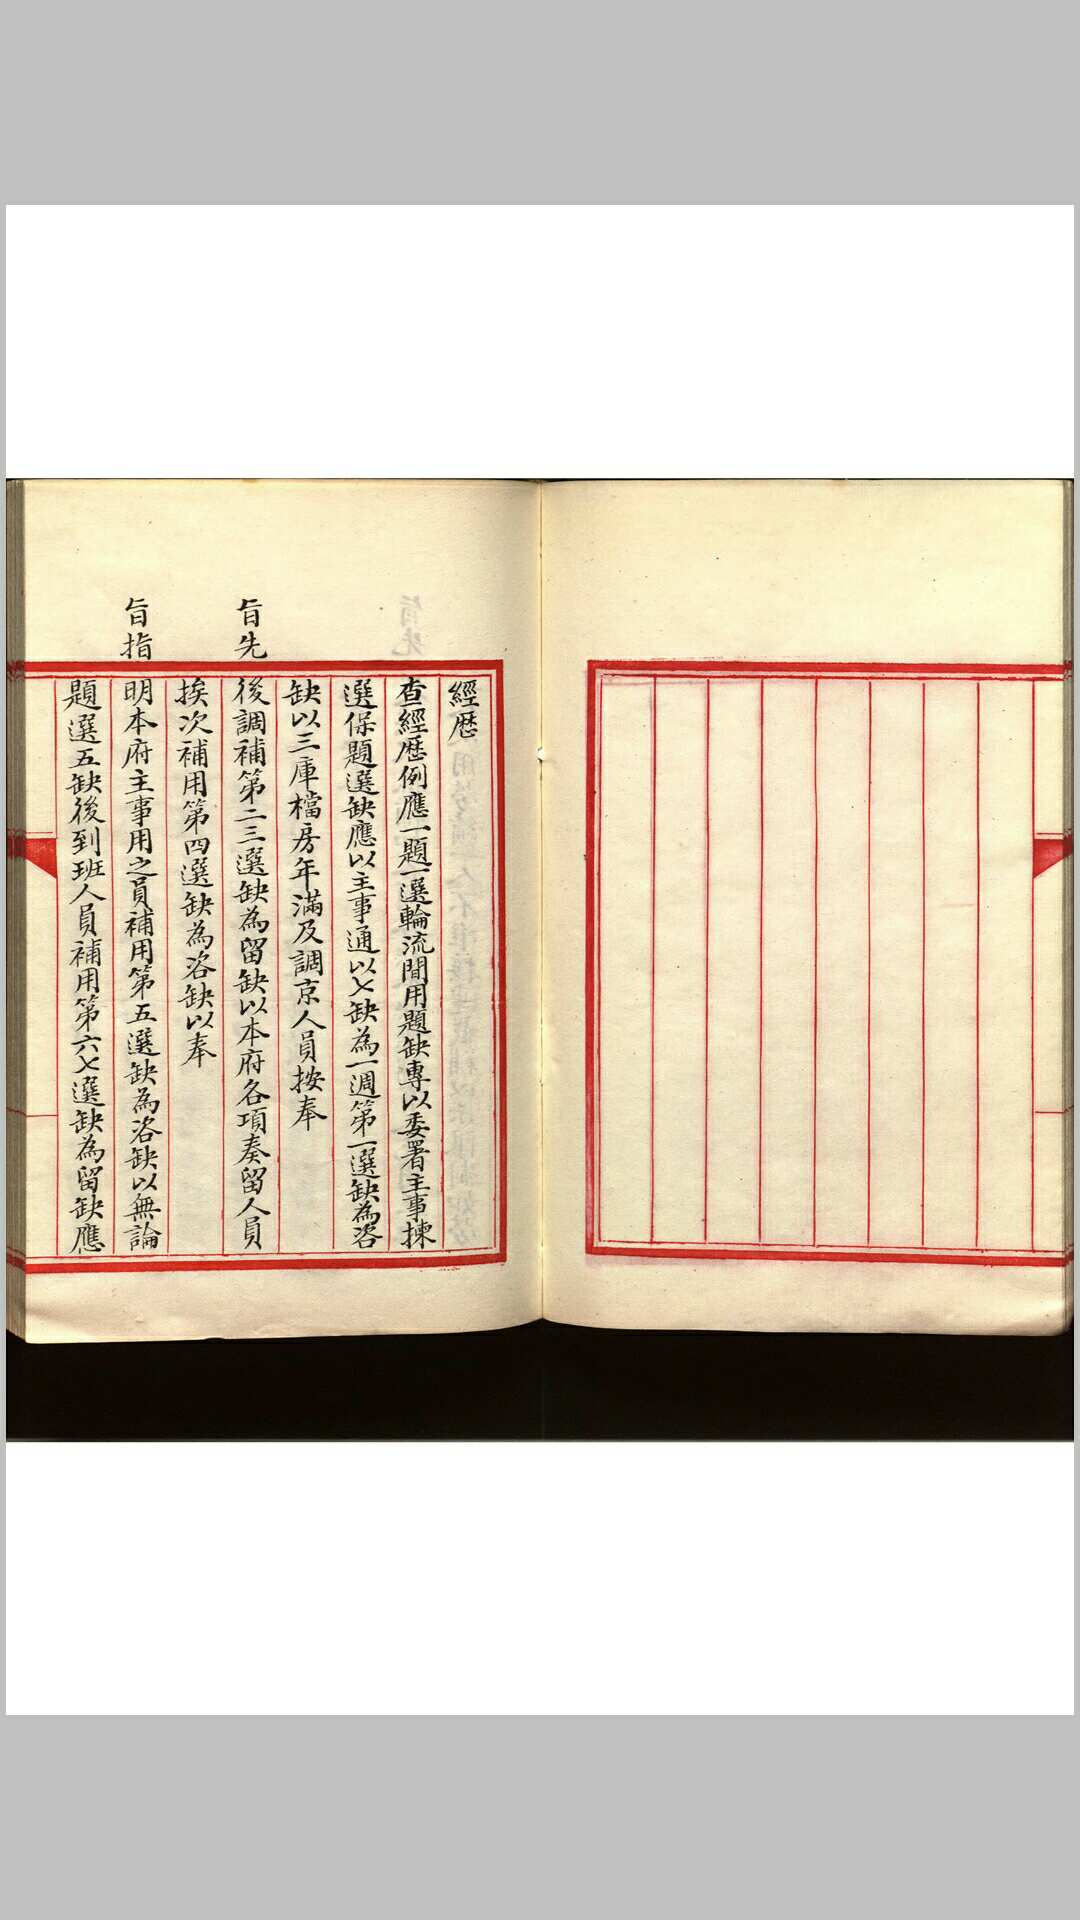 經歴
查經歴例應一題一選輪流間用題缺專以委署主事揀
選保題選缺應以主事通以七缺為一週第一選缺為咨
缺以三庫檔房年滿及調京人員按奉
旨先後調補第二三選缺為留缺以本府各項奏留人員
挨次補用第四選缺為咨缺以奉
旨指明本府主事用之員補用第五選缺為咨缺以無論
題選五缺後到班人員補用第六七選缺為留缺應